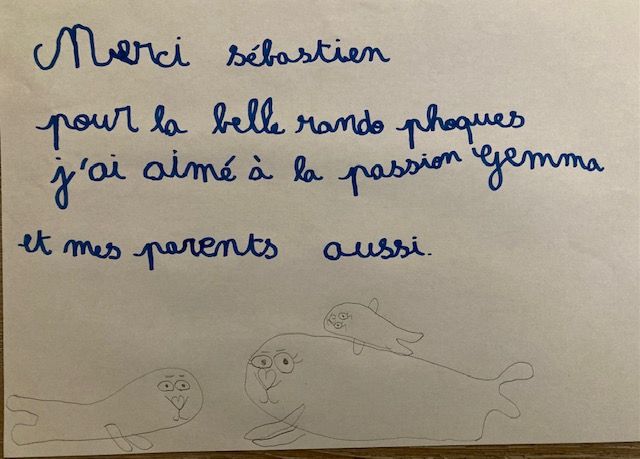 Merci sébastien
pour la belle rando phoques
j'ai aimé à la passion Gemma
et mes parents aussi.